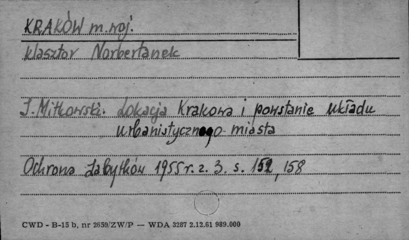 KRAKÓW m. woj.
klasztor Norbertanek
J. Mitkowski. Lokacja Krakowa i powstanie układu
urbanistycznego miasta
Ochrona Zabytków 1955 r. z. 3. s. 152, 158
CWD - B-15 b, nr 2650/ZW/P — WDA 3287 2.12.61 989.000